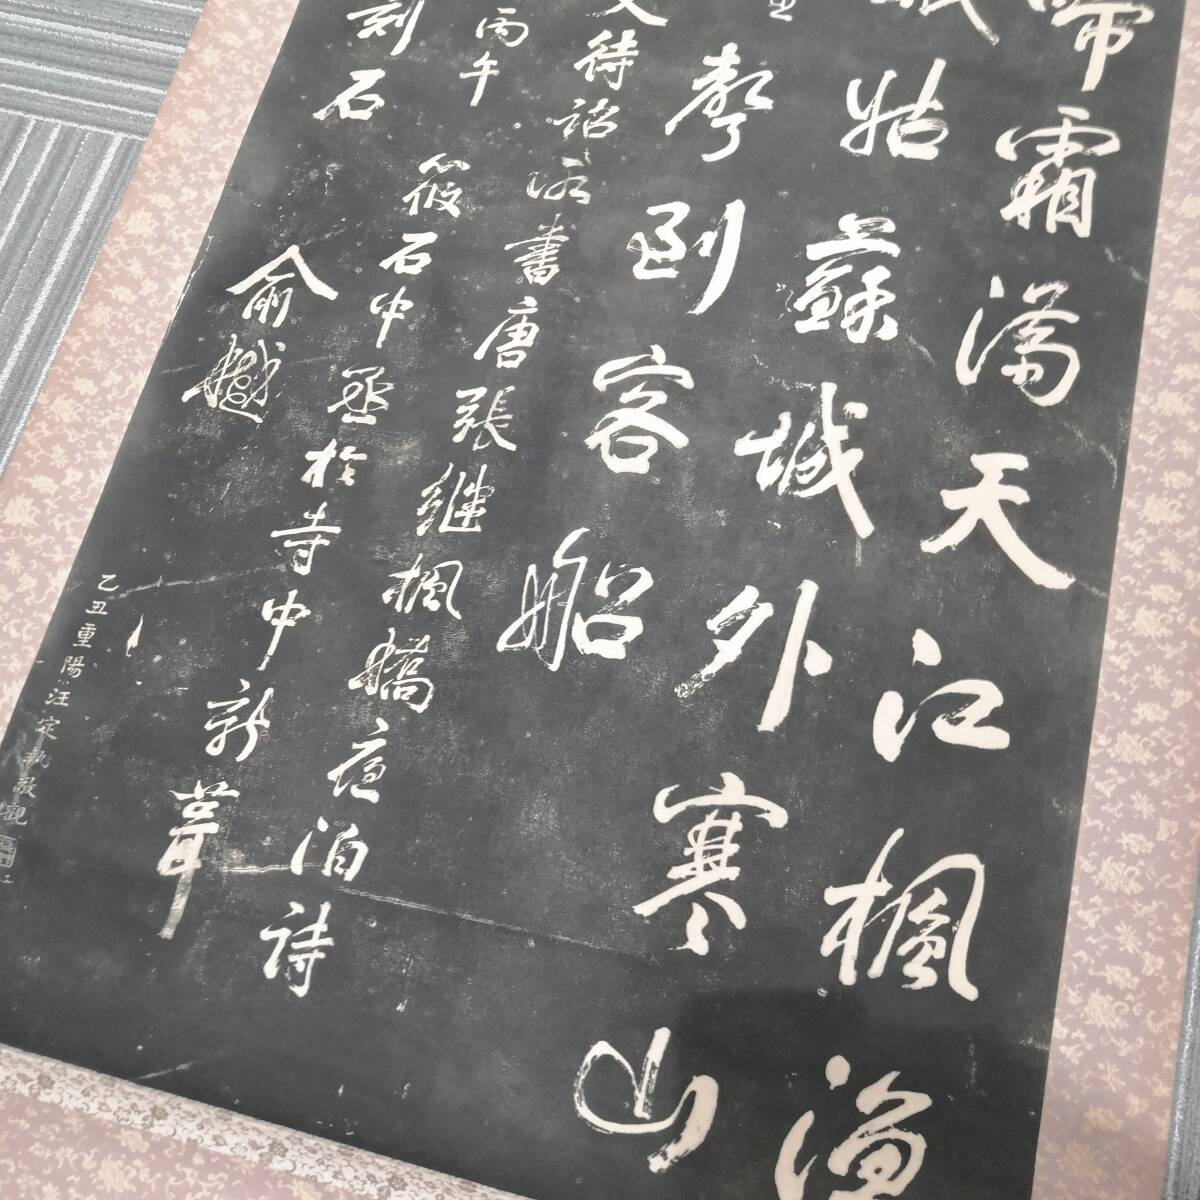 啼霜滿天江楓漁
眠姑蘇城外寒山
聲到客船
文待詔所書唐張繼楓橋夜泊詩
丙午筱石中丞於寺中新葺
刻石俞樾
乙丑重陽汪定執敬觀